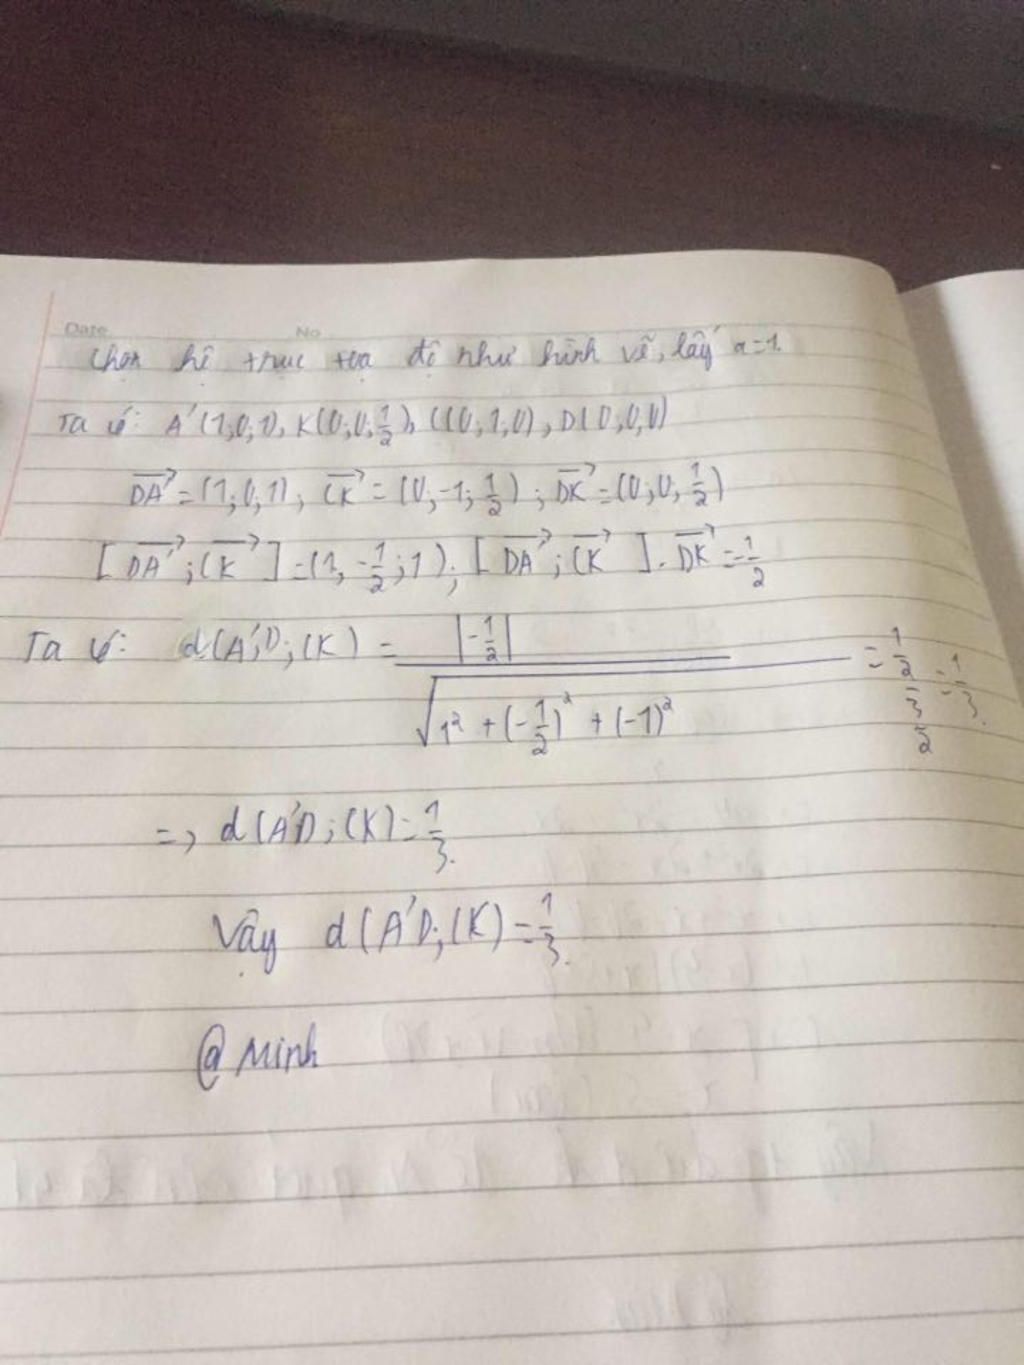 Date No
Chọn hệ trục tọa độ như hình vẽ, lấy a=1.
Ta có: A'(1;0;1), K(0;0;1/2), C(0;1;0), D(0;0;0)
DA'→ = (1;0;1); CK→ = (0;-1;1/2); DK→ = (0;0;1/2)
[DA'→; CK→] = (1; -1/2; 1); [DA'→; CK→]. DK→ = -1/2
Ta có: d(A'D; CK) = |-1/2| / √(1² + (-1/2)² + (-1)²) = (1/2)/(3/2) = 1/3.
=> d(A'D; CK) = 1/3.
Vậy d(A'D; CK) = 1/3.
@ Minh